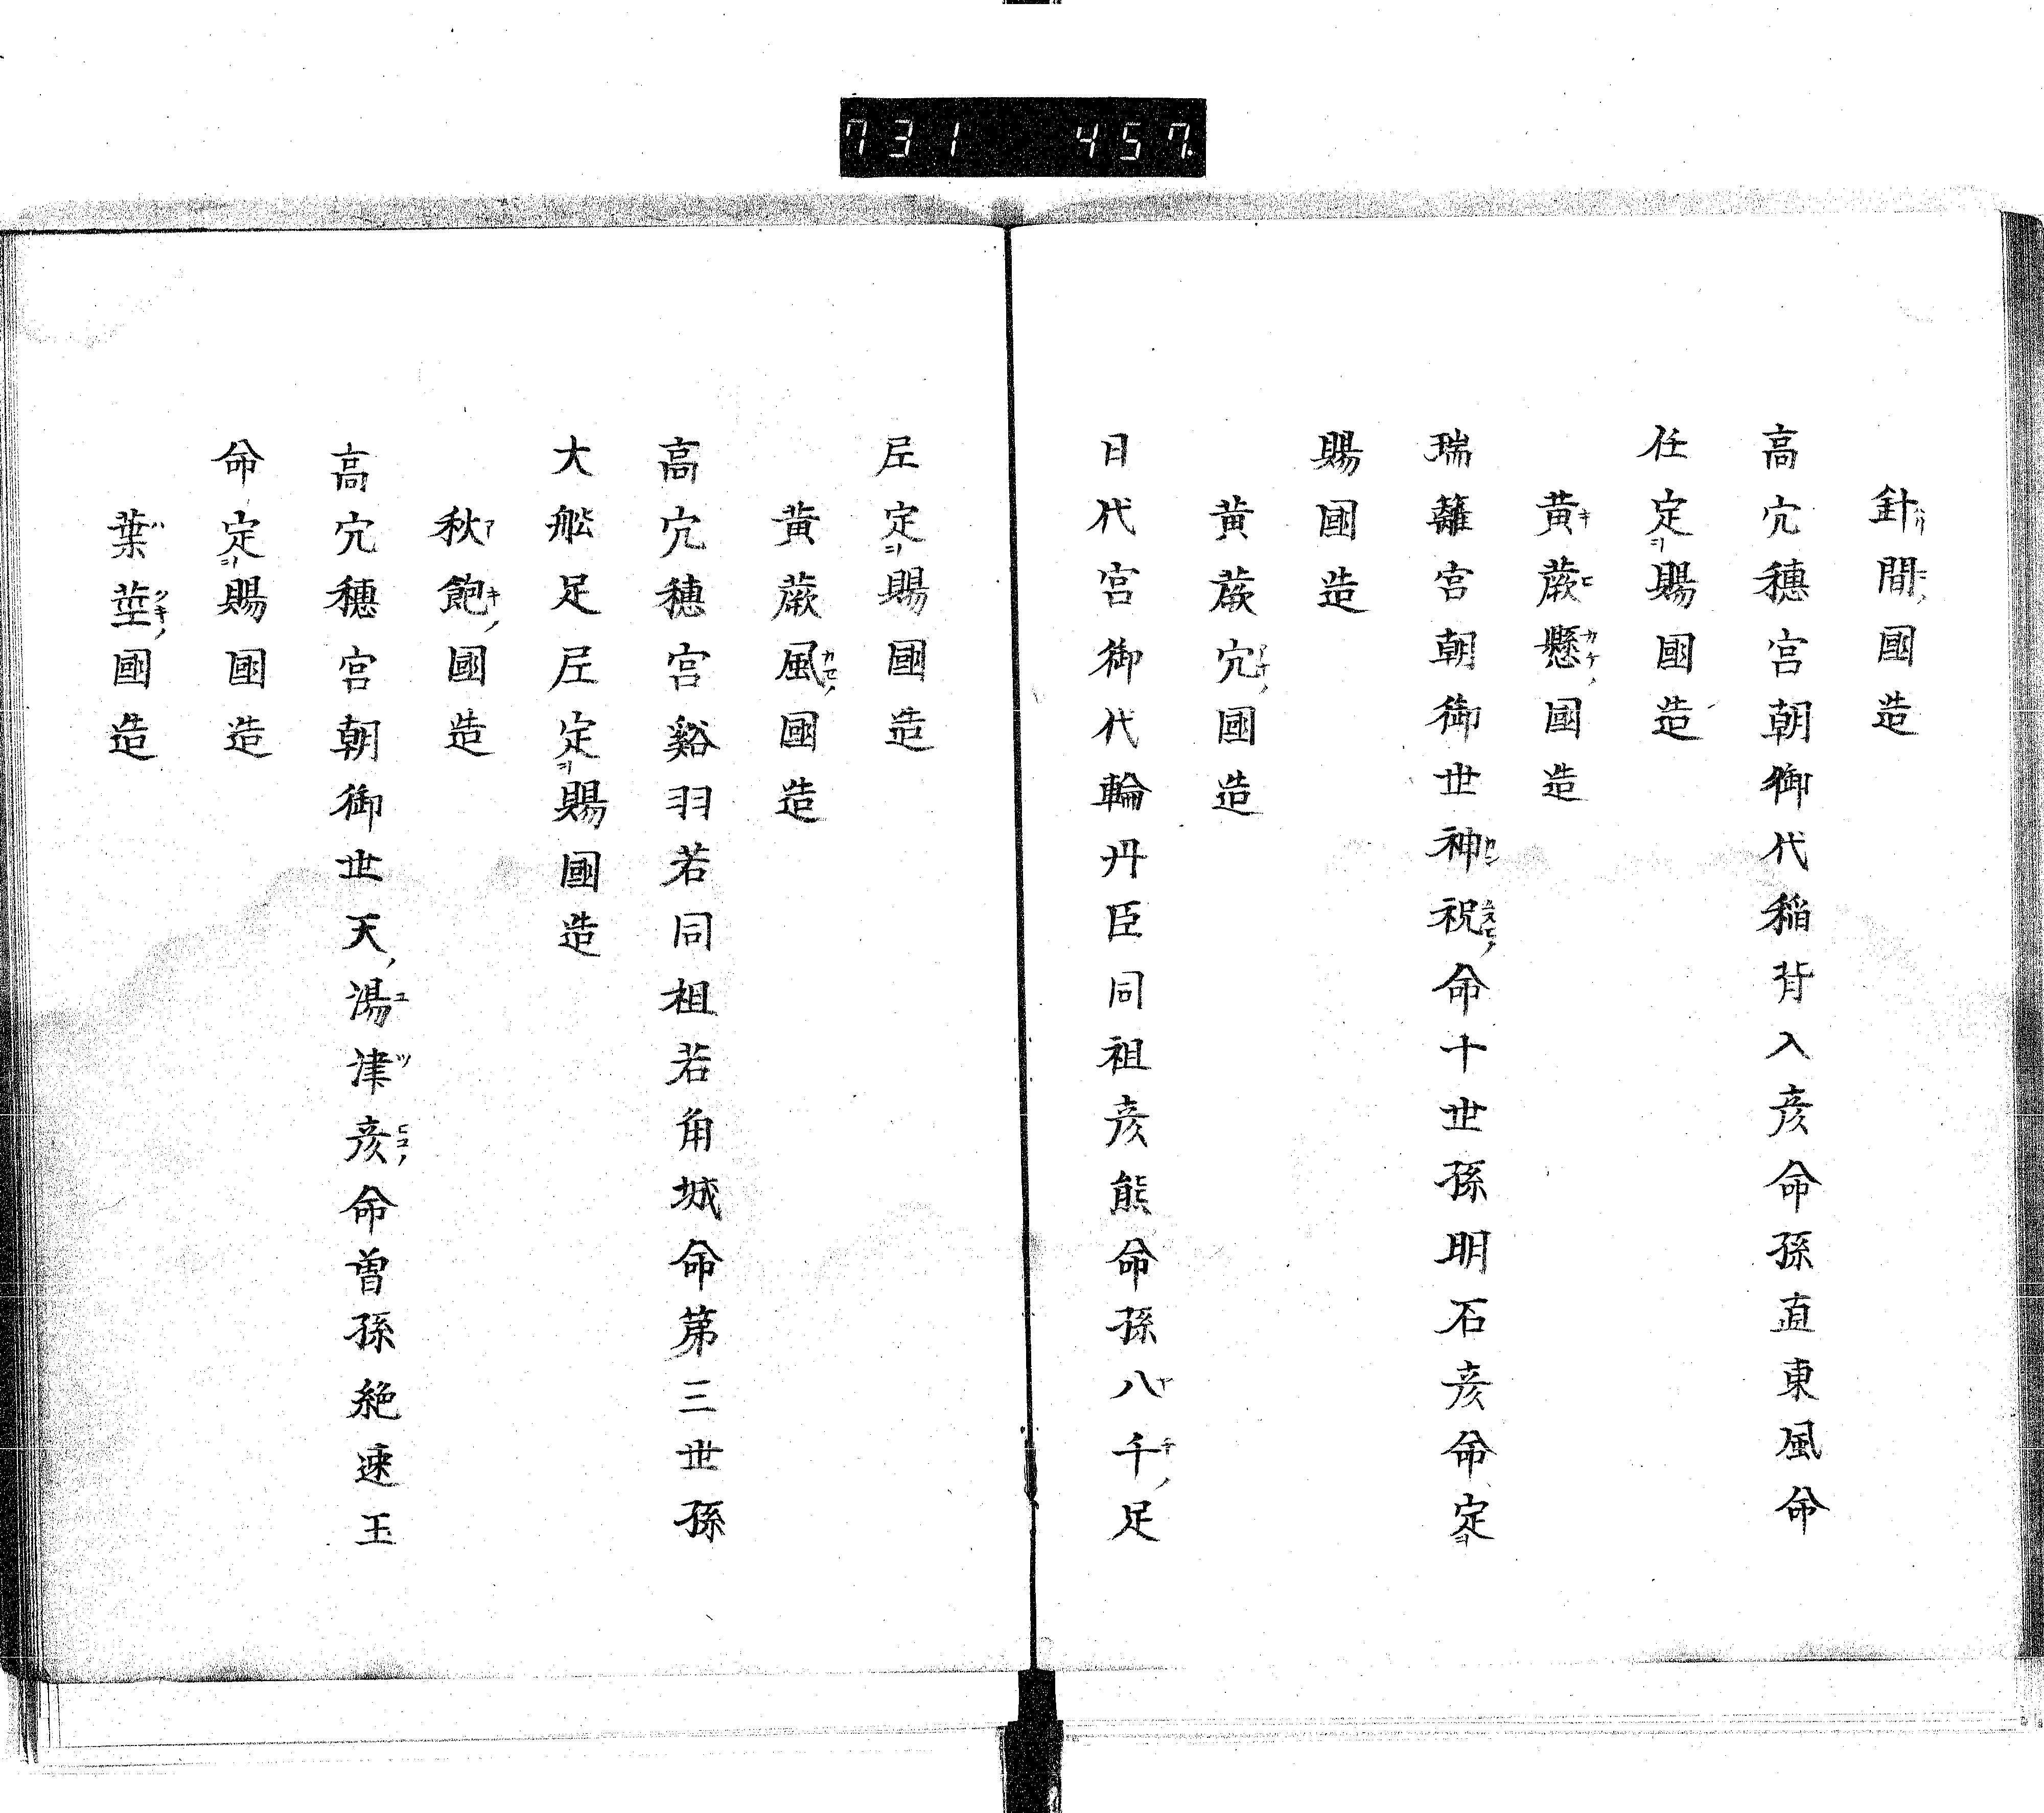 731 457
針間國造
高穴穗宮朝御代稲背入彦命孫直東風命
任定賜國造
黄蕨懸國造
瑞籬宮朝御世神祝命十世孫明石彦命定
賜國造
黄蕨穴國造
日代宮御代輪丹臣同祖彦熊命孫八千足
尼定賜國造
黄蕨風國造
高穴穗宮谿羽若同祖若角城命第三世孫
大舩足尼定賜國造
秋飽國造
高穴穗宮朝御世天湯津彦命曽孫絶速玉
命定賜國造
葉莖國造